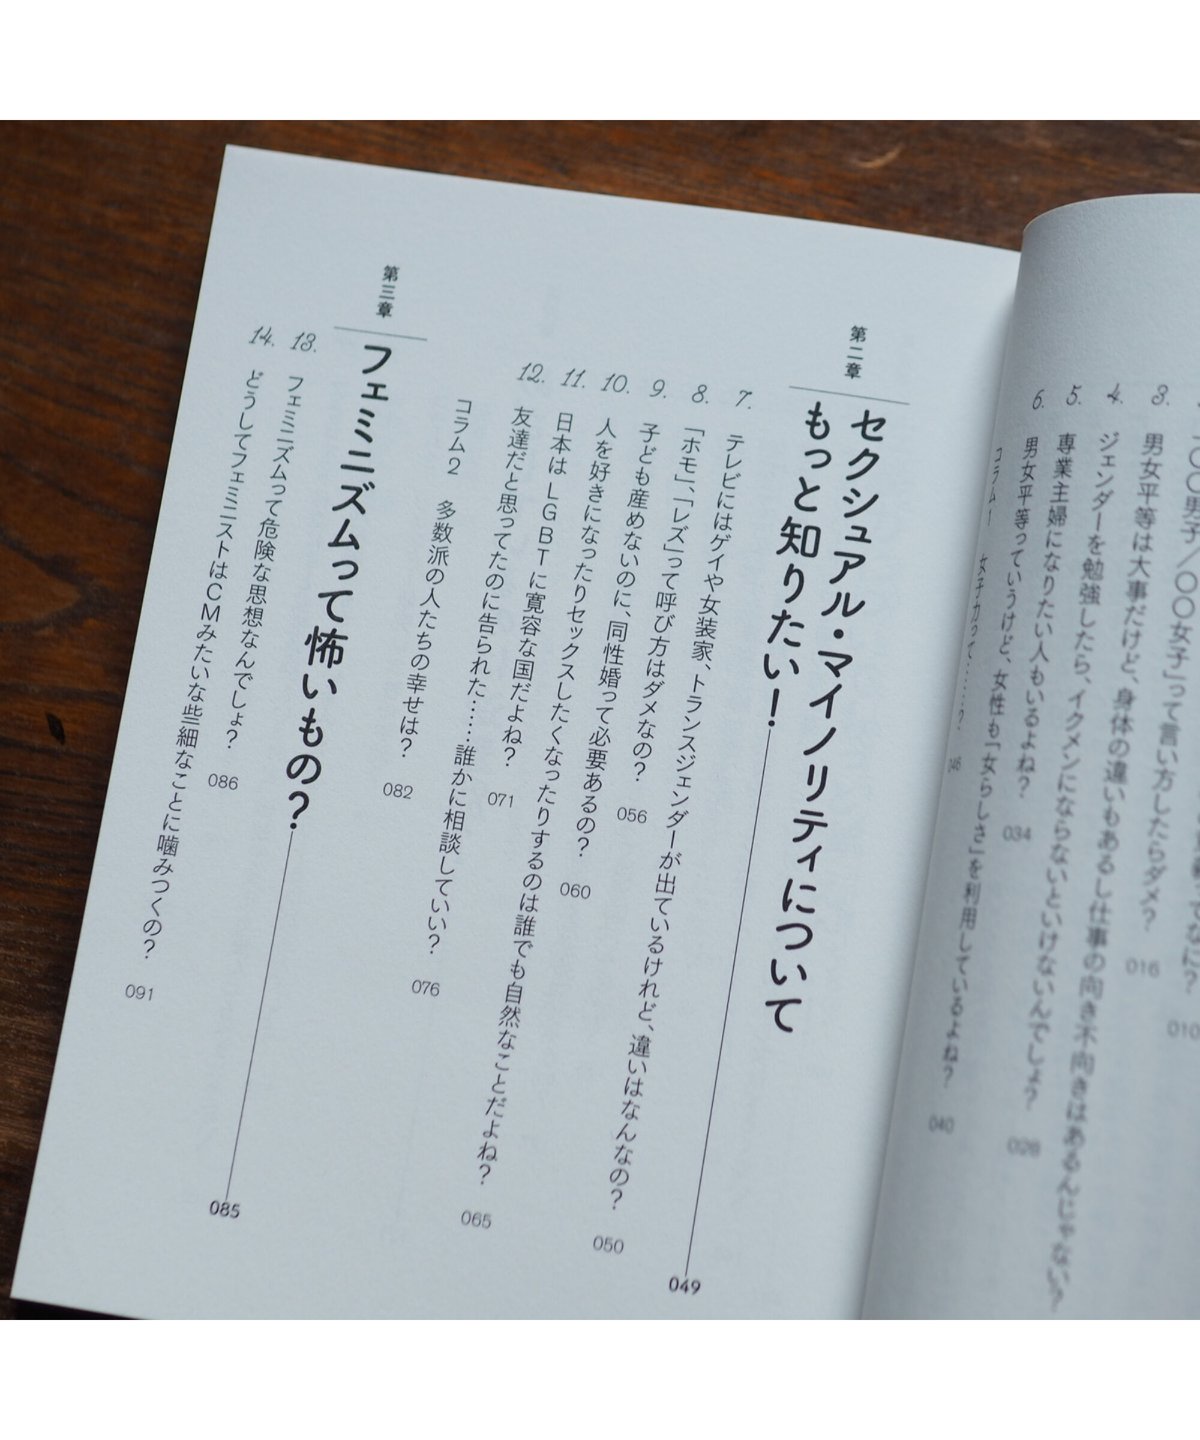 なに？ 010
〇〇男子／〇〇女子」って言い方したらダメ？ 016
3. 男女平等は大事だけど、身体の違いもあるし仕事の向き不向きはあるんじゃない？
4. ジェンダーを勉強したら、イクメンにならないといけないんでしょ？ 028
5. 専業主婦になりたい人もいるよね？ 034
6. 男女平等っていうけど、女性も「女らしさ」を利用しているよね？ 040
コラム1 女子力って……？ 046
第二章
セクシュアル・マイノリティについて
もっと知りたい！ 049
7. テレビにはゲイや女装家、トランスジェンダーが出ているけれど、違いはなんなの？ 050
8. 「ホモ」、「レズ」って呼び方はダメなの？ 056
9. 子ども産めないのに、同性婚って必要あるの？ 060
10. 人を好きになったりセックスしたくなったりするのは誰でも自然なことだよね？ 065
11. 日本はLGBTに寛容な国だよね？ 071
12. 友達だと思ってたのに告られた……誰かに相談していい？ 076
コラム2 多数派の人たちの幸せは？ 082
第三章
フェミニズムって怖いもの？ 085
13. フェミニズムって危険な思想なんでしょ？ 086
14. どうしてフェミニストはCMみたいな些細なことに噛みつくの？ 091